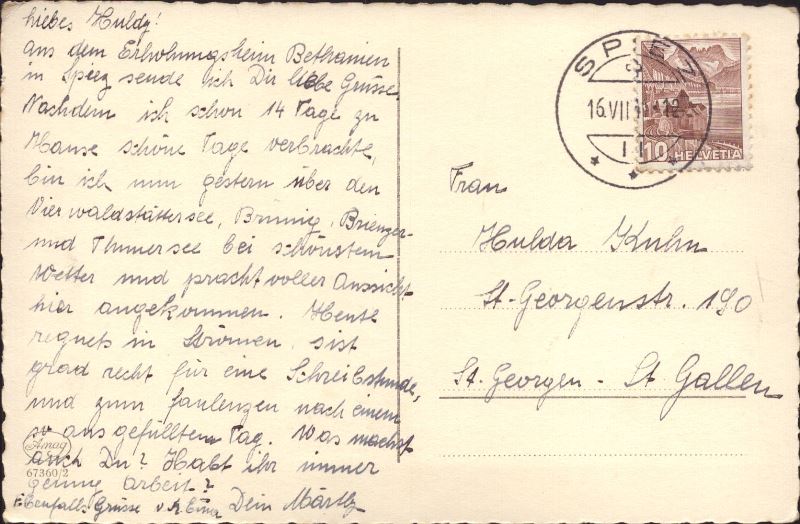 Liebes Huldy!
Aus dem Erholungsheim Bethanien
in Spiez sende ich Dir liebe Grüsse.
Nachdem ich schon 14 Tage zu
Hause schöne Tage verbrachte,
bin ich nun gestern über den
Vierwaldstättersee, Brünig, Brienzer-
und Thunersee bei schönstem
Wetter und prachtvoller Aussicht
hier angekommen. Heute
regnets in Strömen, sist
grad recht für eine Schreibstunde,
und zum faulenzen nach einem
so ausgefüllten Tag. Was machst
auch Du? Habt ihr immer
genug Arbeit?
Ebenfalls Grüsse v. Dein Märtly
Amag
67360/2
SPIEZ
16.VII 12
10 HELVETIA
Frau
Hulda Kuhn
St-Georgenstr. 190
St. Georgen - St Gallen